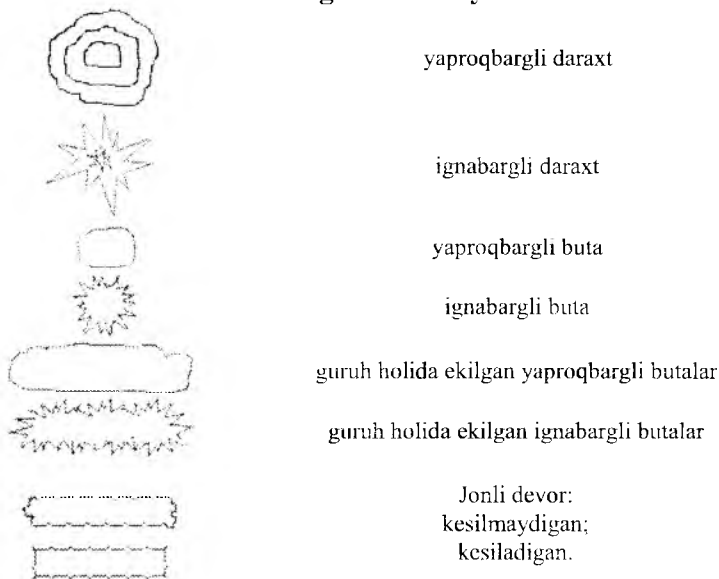 yaproqbargli daraxt
ignabargli daraxt
yaproqbargli buta
ignabargli buta
guruh holida ekilgan yaproqbargli butalar
guruh holida ekilgan ignabargli butalar
Jonli devor:
kesilmaydigan;
kesiladigan.